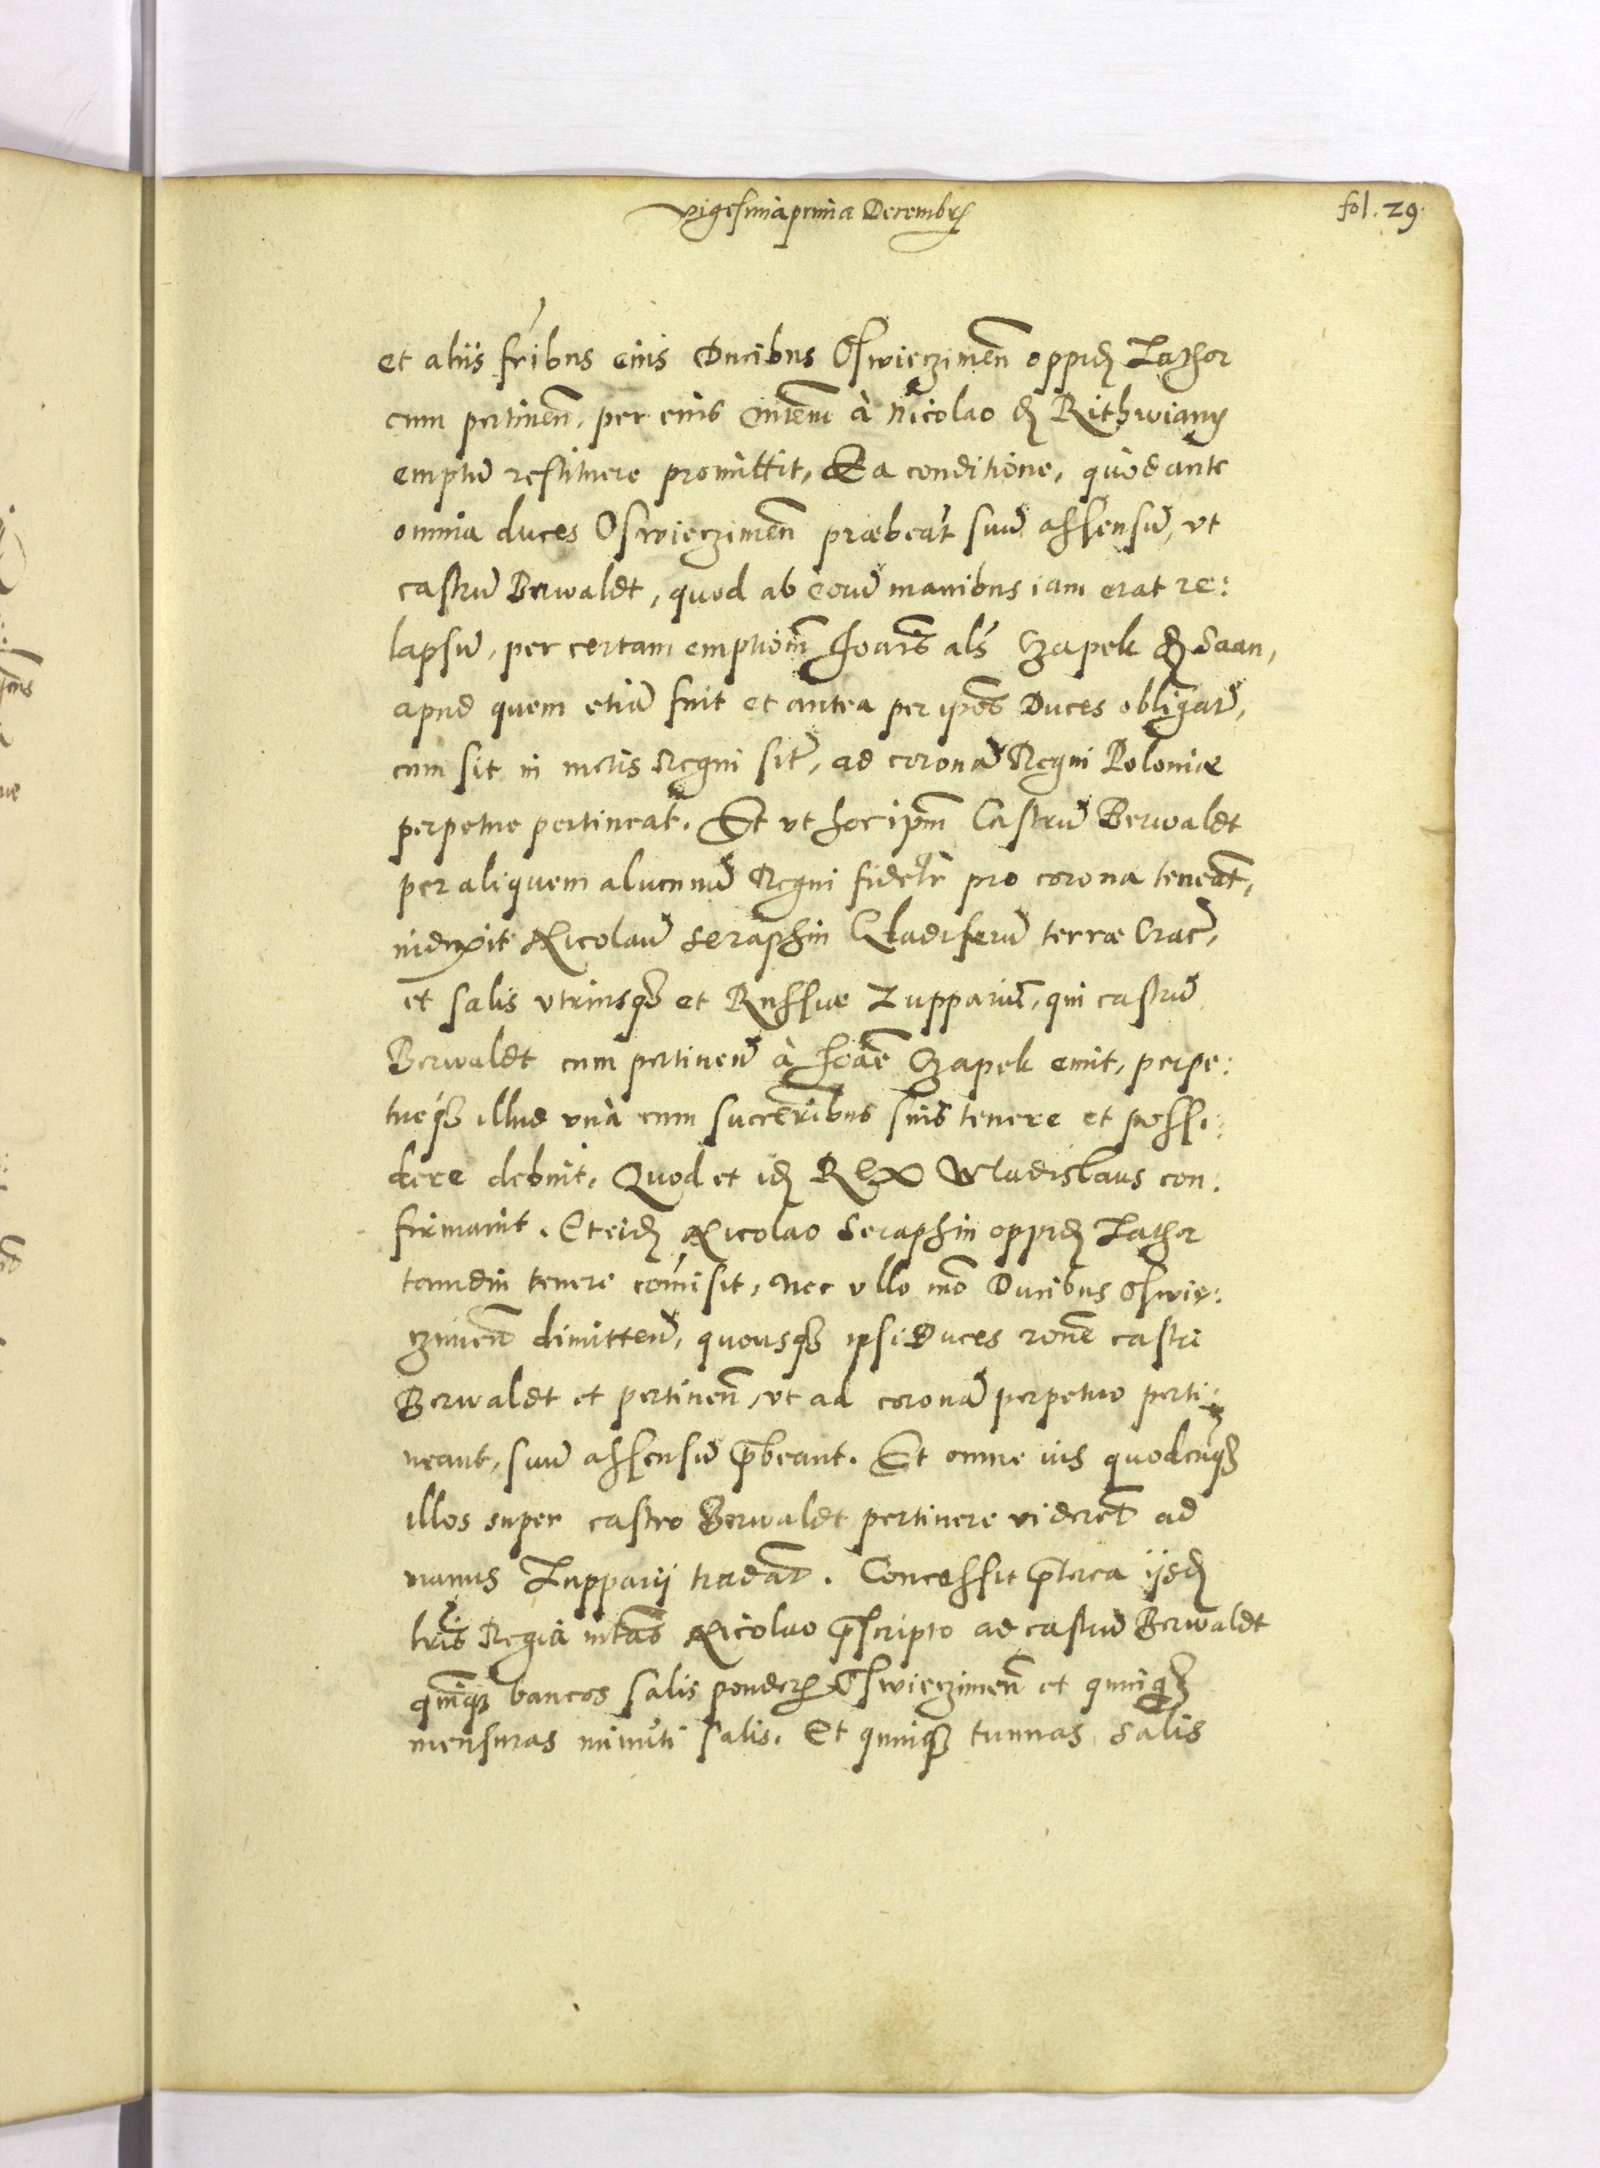 vigesima prima Decembrꝭ
fol. 29.
et aliis fribus eius Ducibus Oswieczimeñ oppidũ Zathor
cum pertineñ, per eius Mtem à Nicolao de Rithwiany
emptũ restituere promittit, Ea conditione, quòd ante
omnia duces Oswieczimeñ præbeãt suũ assensũ, vt
castrũ Berwaldt, quod ab eorũ manibus iam erat re:
lapsũ, per certam emptionẽ Joãis als Czapek de Saan,
apud quem etiã fuit et antea per ipõs Duces obligatũ,
cum sit in metis Regni sitũ, ad coronã Regni Poloniæ
perpetuo pertineat. Et vt hoc ipm̃ Castrũ Berwaldt
per aliquem alumnũ Regni fidelr pro corona teneat̃,
induxit Nicolaũ Seraphin Gladiferũ terræ Crac̃,
et salis vtriusqꝫ et Russiæ Zuppariũ, qui castrũ
Berwaldt cum pertineñ à Joãe Czapek emit, perpe:
tueqꝫ illud vnà cum succeribus suis tenere et possi:
dere debuit, Quod et idẽ Rex Wladislaus con:
firmauit. Et eidẽ Nicolao Seraphin oppidũ Zathor
tamdiu tenere com̃isit, Nec vllo mõ Ducibus Oswie:
czimeñ dimitteñ, quousqꝫ ipsi Duces rõne castri
Berwaldt et pertineñ, vt ad coronã perpetuo perti:
neant, suũ assensũ p̃beant. Et omne ius quodcũqꝫ
illos super castro Berwaldt pertinere videret̃ ad
manus Zupparij tradãt. Concessit p̃terea ijsdẽ
lrìs Regia mtãs Nicolao p̃scripto ad castrũ Berwaldt
quinqꝫ bancos salis ponderꝭ Oswieczimeñ et quinqꝫ
mensuras minuti salis. Et quinqꝫ tunnas salis